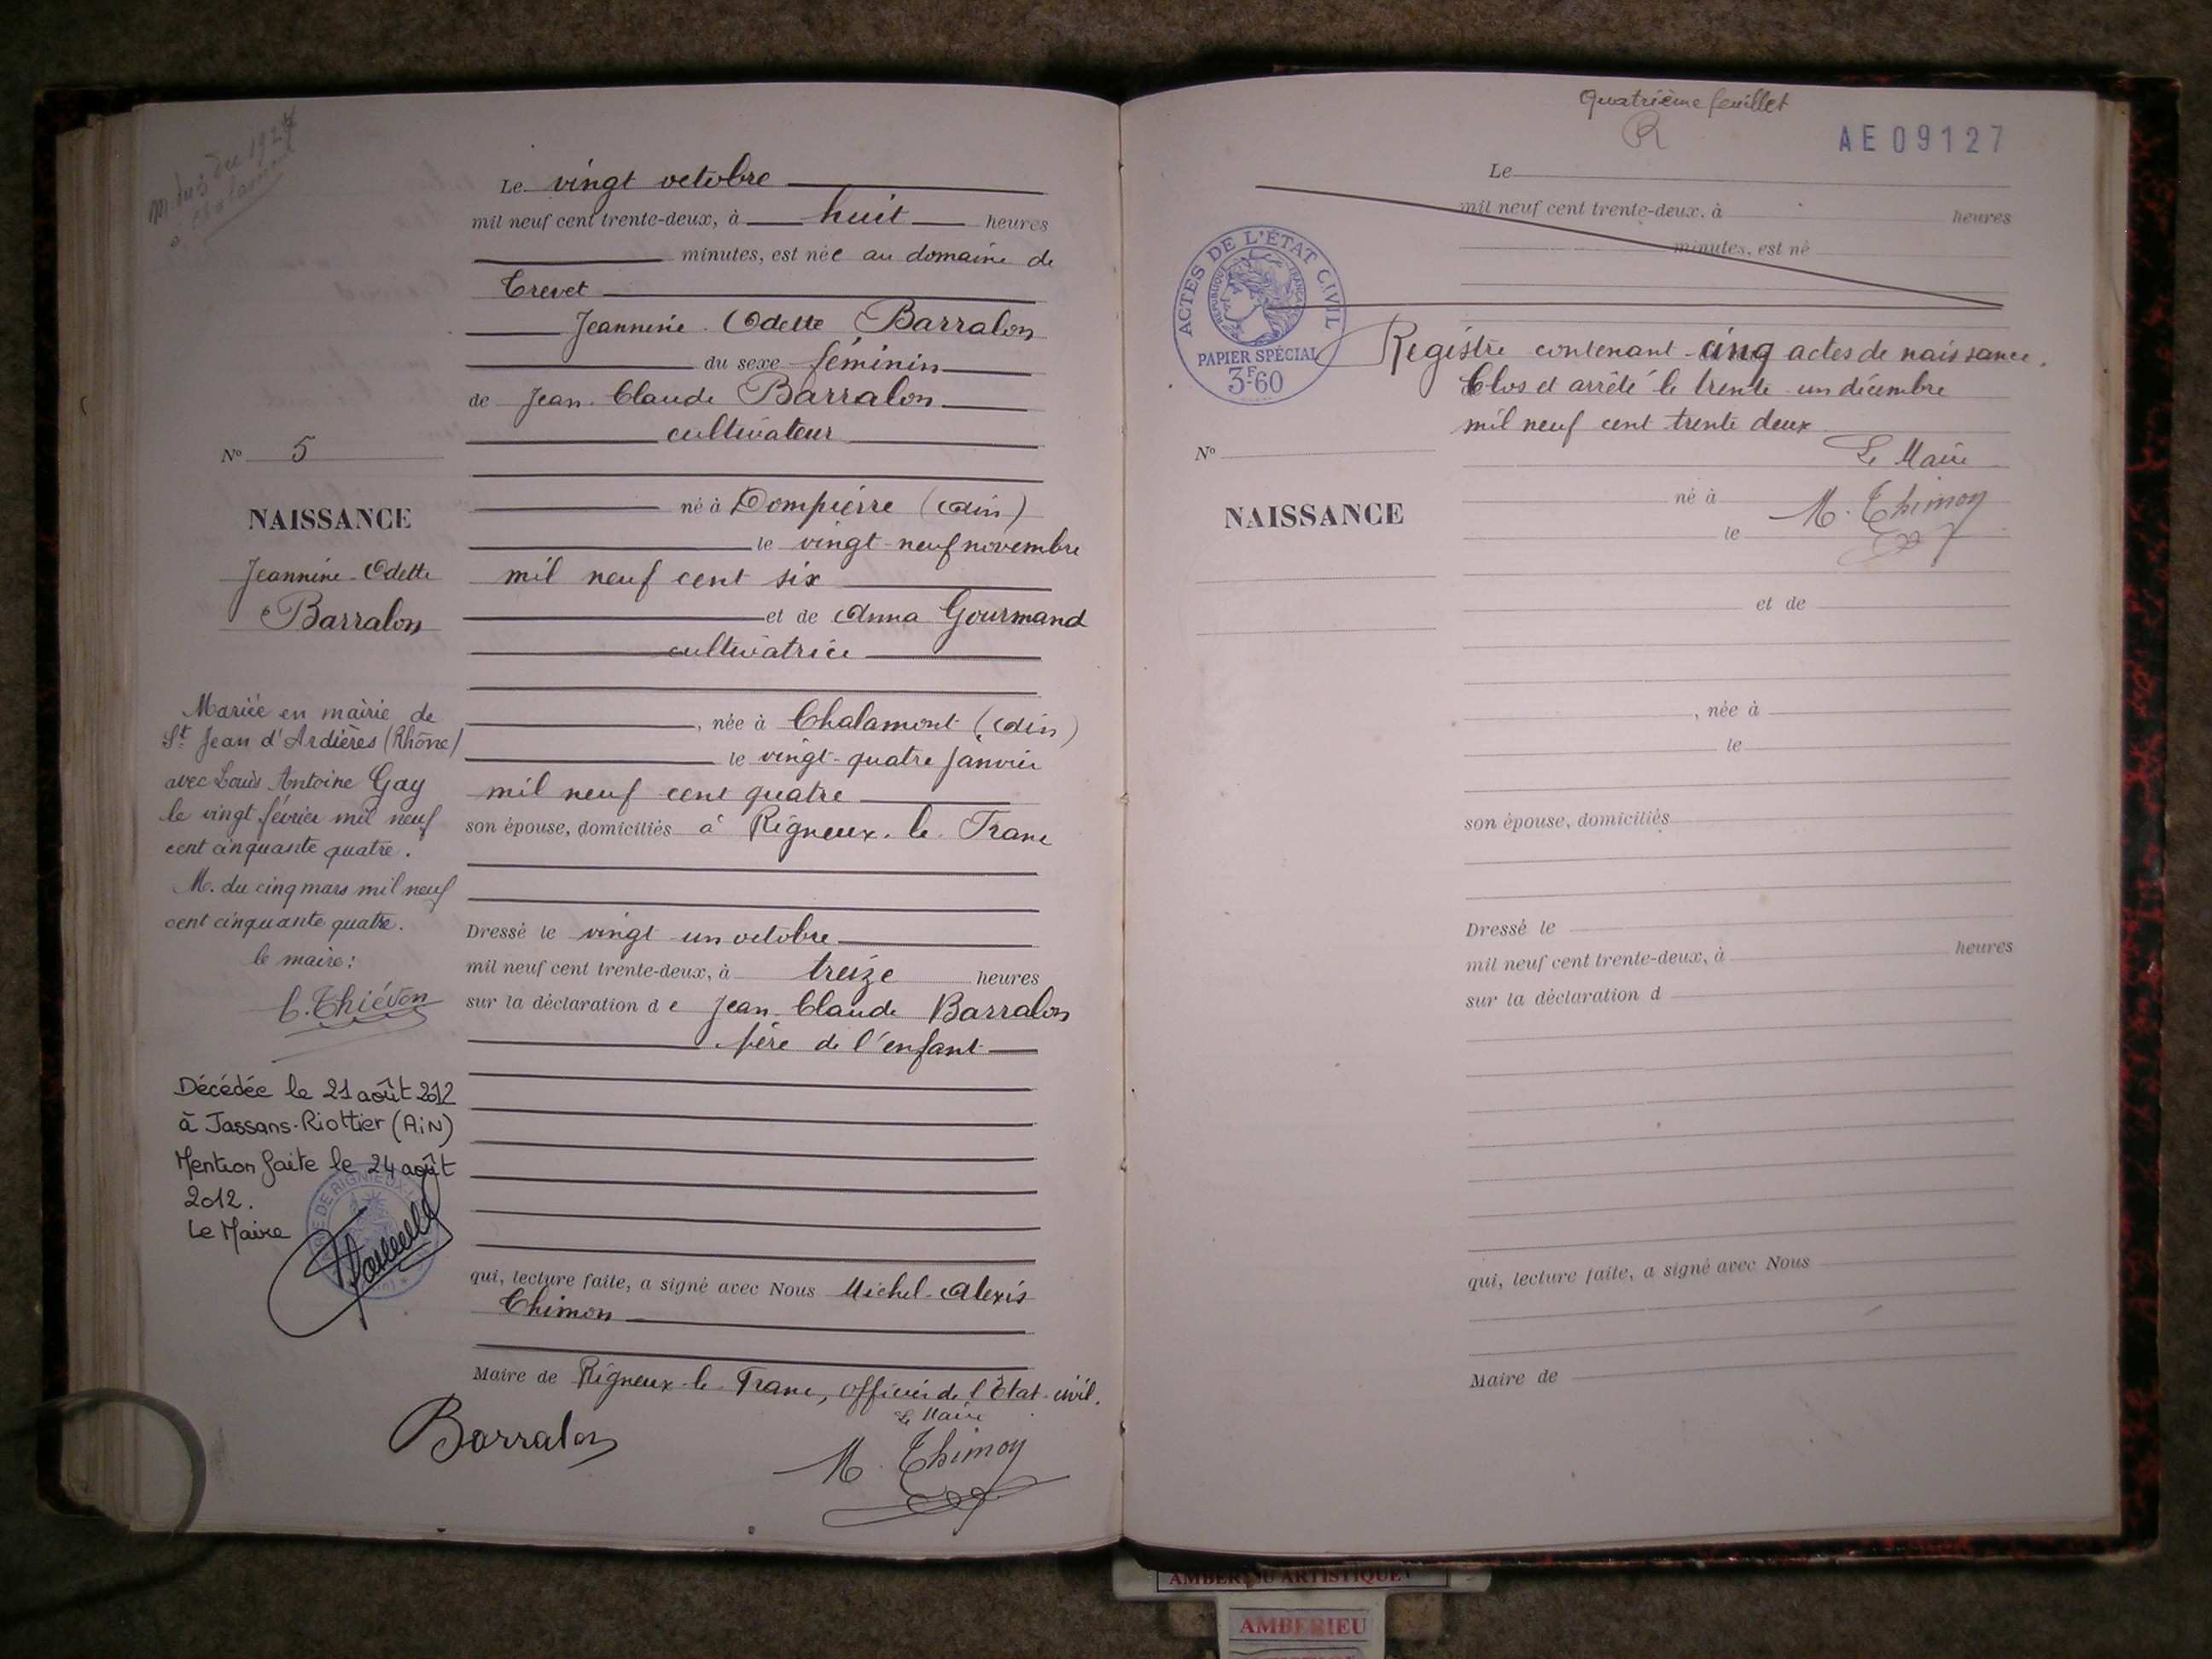 M. du 3 Du 1927
Le vingt octobre
mil neuf cent trente-deux, à huit heures
minutes, est née au domaine de
Trevet
Jeannine Odette Barralon
du sexe féminin
de Jean Claude Barralon
cultivateur
né à Dompierre (Ain)
le vingt-neuf novembre
mil neuf cent six
et de Anna Gourmand
cultivatrice
, née à Chalamont (Ain)
le vingt-quatre Janvier
mil neuf cent quatre
son épouse, domiciliés à Rigneux-le-Franc
Dressé le vingt un octobre
mil neuf cent trente-deux, à treize heures
sur la déclaration de Jean Claude Barralon
père de l'enfant
qui, lecture faite, a signé avec Nous Michel-Alexis
Thimon
Maire de Rigneux-le-Franc, officier de l'Etat-civil.
Le Maire
Barralon
M. Thimon
No 5
NAISSANCE
Jeannine-Odette
Barralon
Mariée en mairie de
St Jean d'Ardières (Rhône)
avec Louis Antoine Gay
le vingt février mil neuf
cent cinquante quatre.
M. du cinq mars mil neuf
cent cinquante quatre.
le maire:
C. Thiévon
Décédée le 21 août 2012
à Jassans-Riottier (AiN)
Mention faite le 24 août
2012.
Le Maire
MAIRIE DE RIGNIEUX
Quatrième feuillet
R
AE 09127
Le
mil neuf cent trente-deux, à heures
minutes, est né
ACTES DE L'ÉTAT CIVIL
RÉPUBLIQUE FRANÇAISE
PAPIER SPÉCIAL
3F60
Registre contenant cinq actes de naissance.
Clos et arrêté le trente-un décembre
mil neuf cent trente deux
Le Maire
M. Thimon
No
NAISSANCE
né à
le
et de
, née à
le
son épouse, domiciliés
Dressé le
mil neuf cent trente-deux, à heures
sur la déclaration d
qui, lecture faite, a signé avec Nous
Maire de
AMBERIEU ARTISTIQUE
AMBERIEU